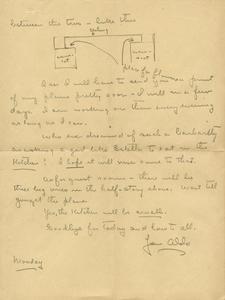 between the two - like this
ceiling
Also you
I see I will have to send you a print
of my plans pretty soon - I will in a few
days. I am working on them every evening
as long as I can.
Who ever dreamed of such a
a girl like Estelle to eat in the
Kitchen! I hope it will never come to that.
As for guest rooms - there will be
three big ones in the half-story above. Wait till
you get the plans.
Yes, the Kitchen will be small.
Goodbye for today and love to all.
Jan Aldo
Monday